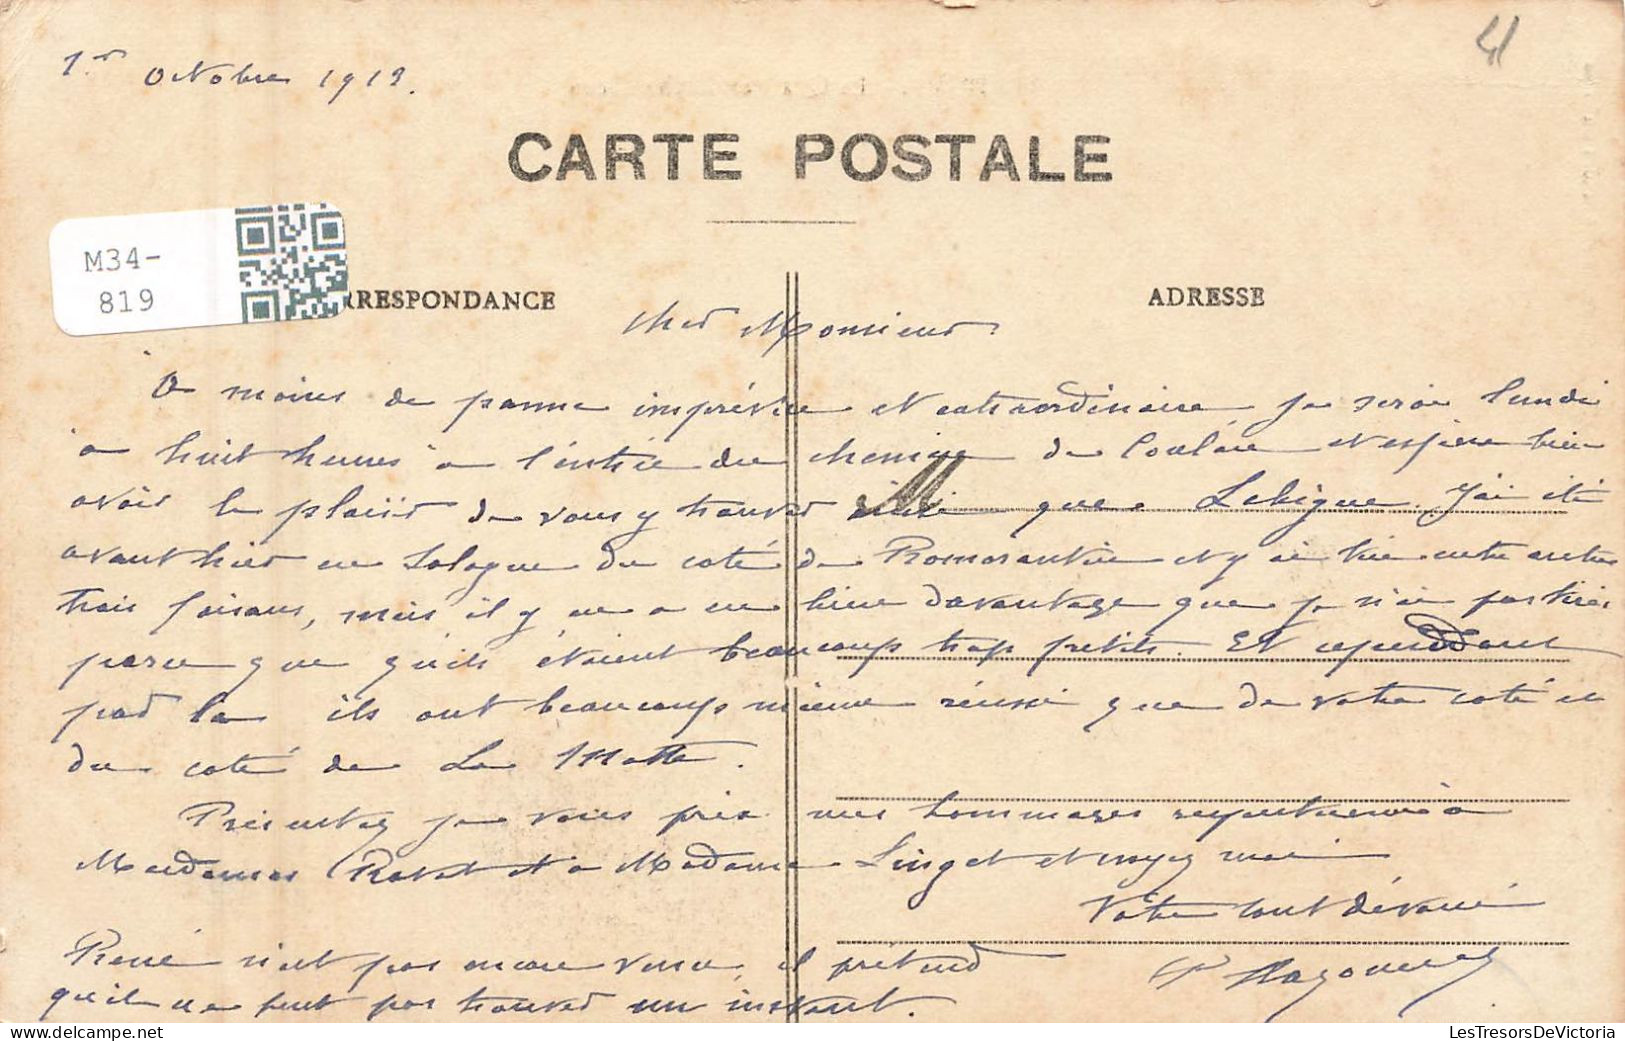 1er Octobre 1913.
41
CARTE POSTALE
M34-
819
RRESPONDANCE
ADRESSE
Cher Monsieur
A moins de panne imprévue et extraordinaire je serai lundi
à huit heures à l'entrée du chemin de et espère bien
avoir le plaisir de vous y trouver ainsi que Lebigue. J'ai été
avant hier en Sologne du coté de Romorantin et y ai tué entre autres
trois faisans, mais il y en a eu bien davantage que je n'ai pas tirés
parce que qu'ils étaient beaucoup trop petits. Et cependant
par la ils ont beaucoup mieux réussi que de votre coté et
du coté de La Motte.
Présentez je vous prie mes hommages respectueux à
Mesdames Ravet et à Madame Linget et croyez moi
Votre tout dévoué
René n'est pas encore venu, il prétend
qu'il ne peut pas trouver un instant.
LesTresorsDeVictoria